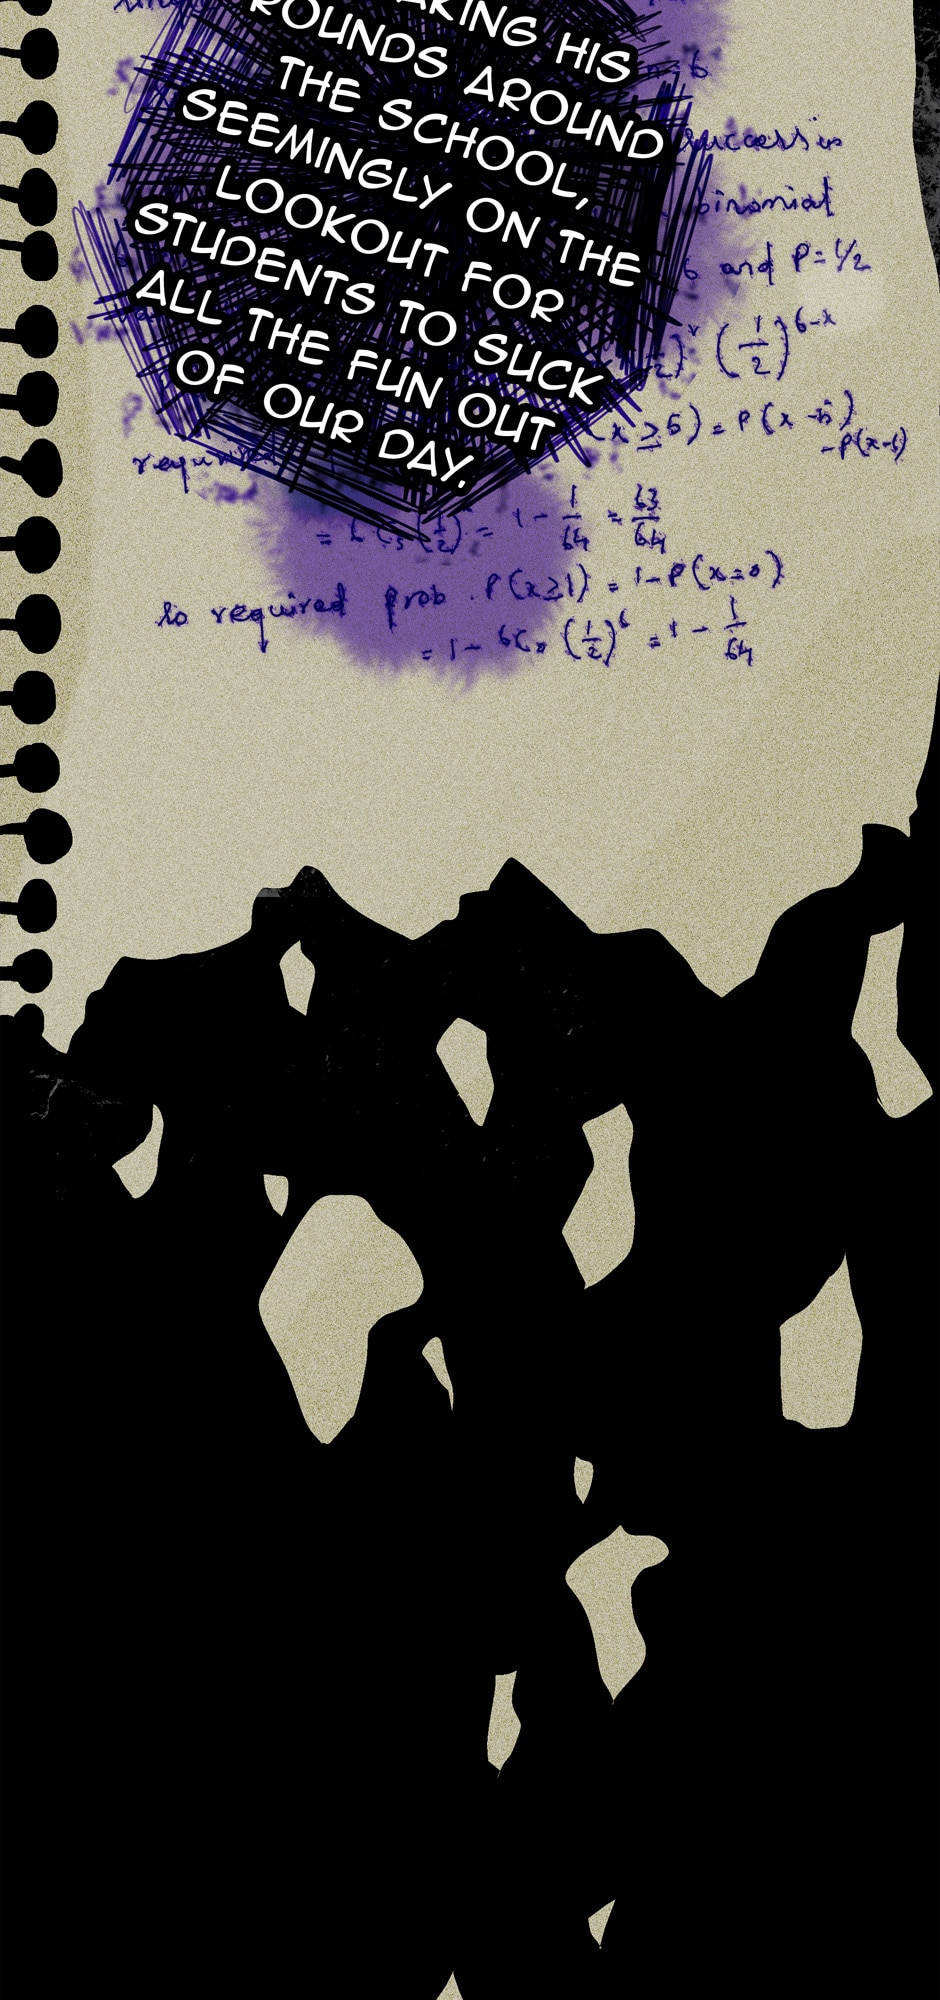 AKING HIS
ROUNDS AROUND
THE SCHOOL,
SEEMINGLY ON THE
LOOKOUT FOR
STUDENTS TO SUCK
ALL THE FUN OUT
OF OUR DAY.
success is
binomial
6 and P = 1/2
(1/2)^6-x
(x ≥ 5) = P(x = 5)
- P(x = 6)
required
= 1 - 1/64 = 63/64
So required prob. P(x ≥ 1) = 1 - P(x = 0)
= 1 - 6C₀ (1/2)^6 = 1 - 1/64